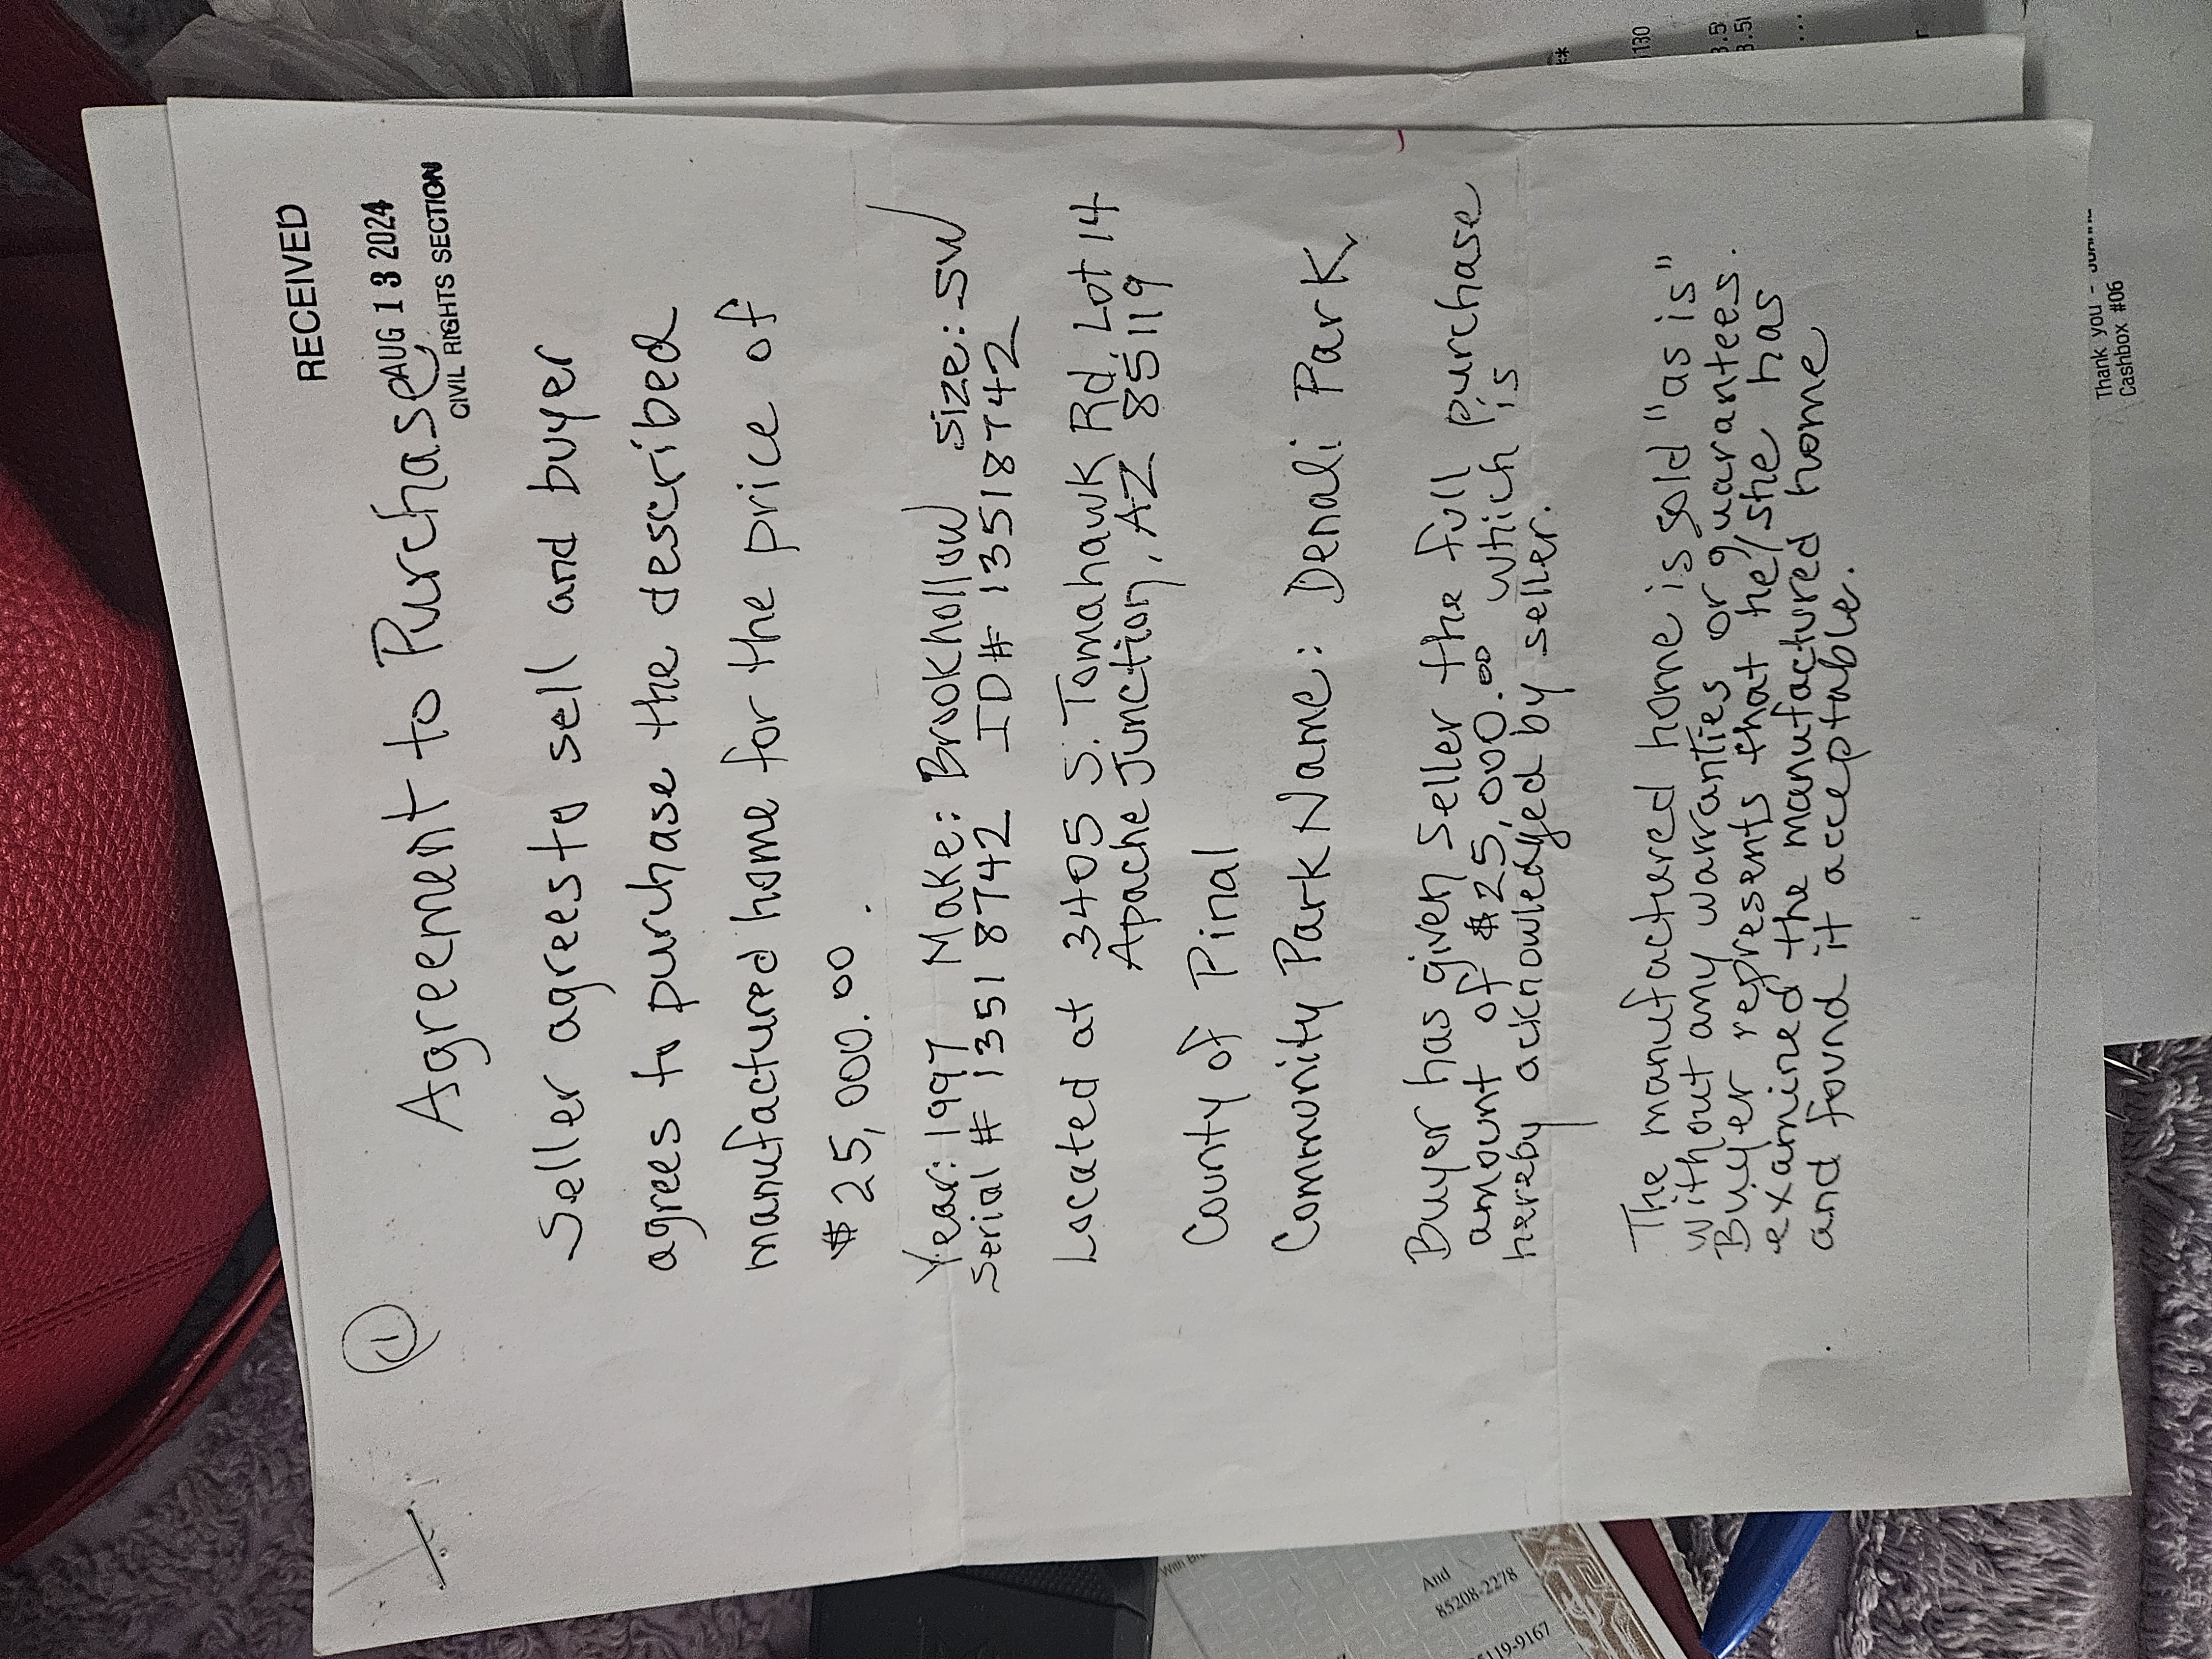 RECEIVED
AUG 13 2024
CIVIL RIGHTS SECTION
1
Agreement to Purchase
Seller agrees to sell and buyer
agrees to purchase the described
manufactured home for the price of
$25,000.00
Year: 1997 Make: Brookhollow Size: SW
Serial # 13518742 ID# 13518742
Located at 3405 S. Tomahawk Rd. Lot 14
Apache Junction, AZ 85119
County of Pinal
Community Park Name: Denali Park
Buyer has given Seller the full purchase
amount of $25,000.00 which is
hereby acknowledged by seller.
The manufactured home is sold "as is"
without any warranties or guarantees.
Buyer represents that he/she has
examined the manufactured home
and found it acceptable.
Thank you -
Cashbox #06
130
3.5
And
85208-2278
119-9167